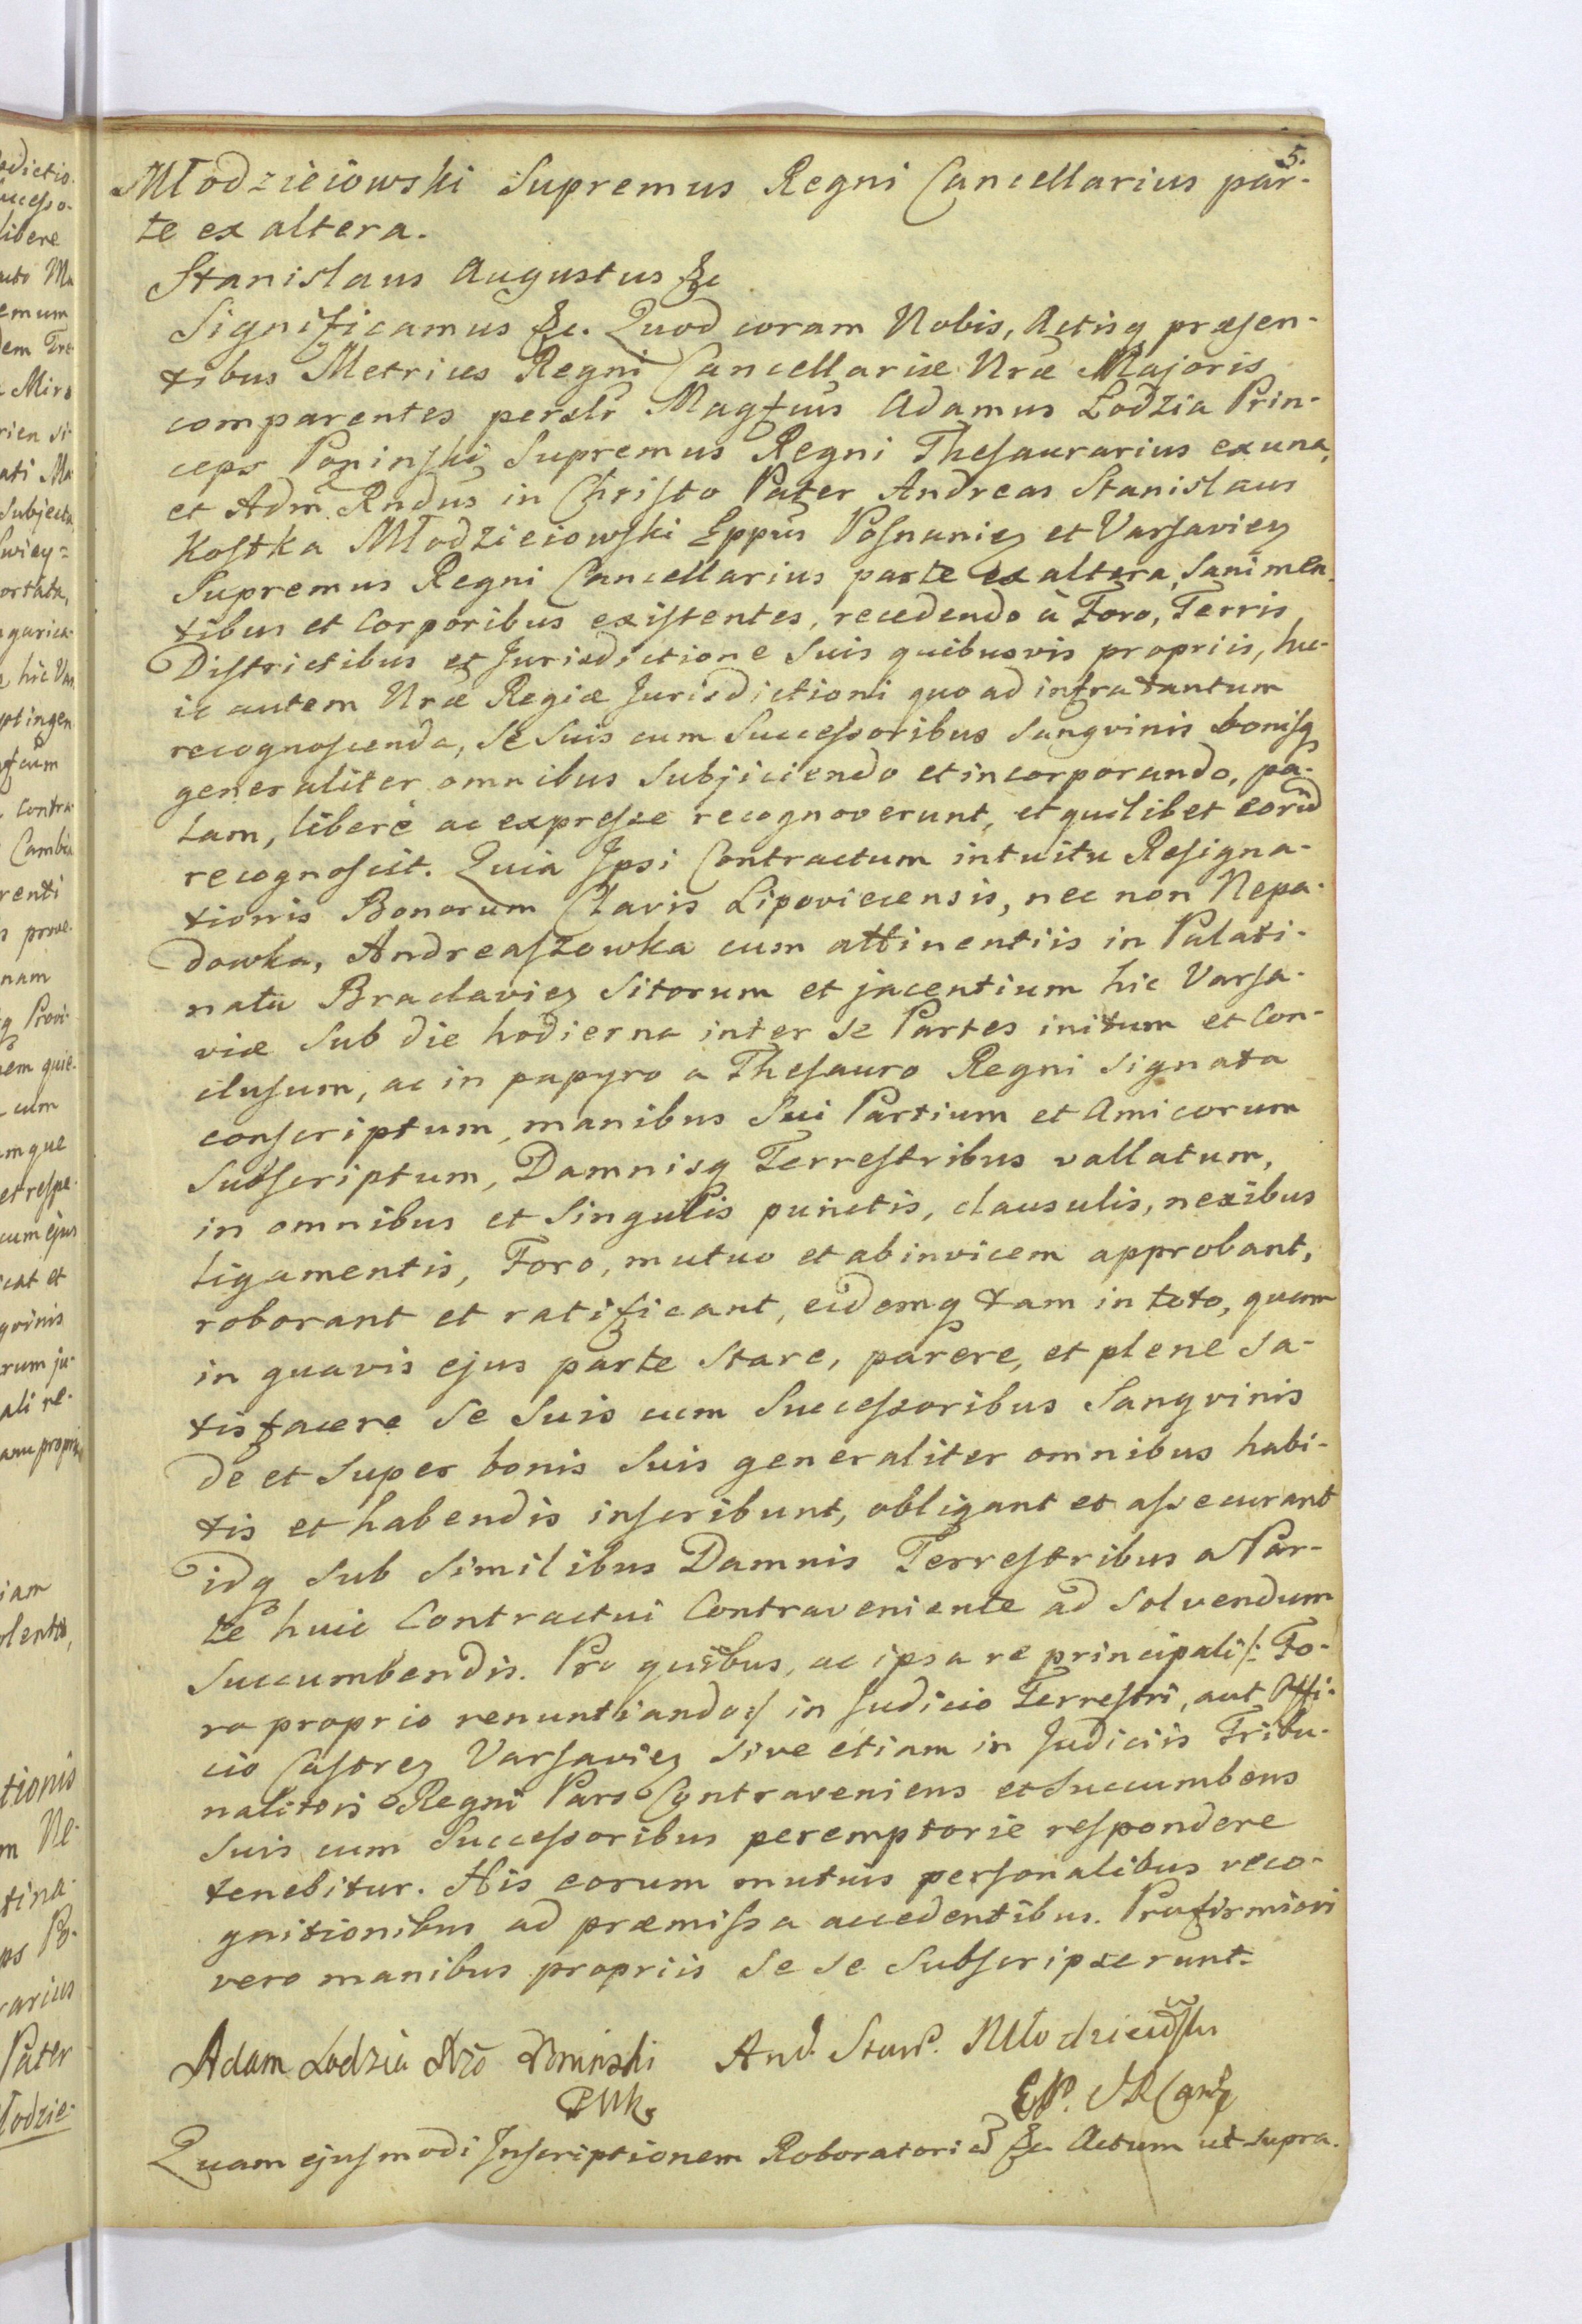 5.
Młodzieiowski Supremus Regni Cancellarius par-
te ex altera.
Stanislaus Augustus &c
Significamus &c. Quod coram Nobis, Actisq præsen-
tibus Metrices Regni Cancellariæ Nræ Majoris
comparentes persir Magfcus Adamus Lodzia Prin-
ceps Poninski Supremus Regni Thesaurarius ex una,
et Adm Rndus in Christo Pater Andreas Stanislaus
Kostka Młodzieiowski Eppus Posnanien et Varsavien
Supremus Regni Cancellarius parte ex altera, Sani men-
tibus et Corporibus existentes, recedendo à Foro, Terris
Districtibus et Jurisdictione Suis quibusvis propriis, hu-
ic autem Nræ Regiæ Jurisdictioni quo ad infra tantum
recognoscenda, Se Suis cum Successoribus Sangvinis bonisq
generaliter omnibus Subjiciendo et incorporando, pa-
lam, liberè ac expresse recognoverunt, et quilibet eorũd
recognoscit. Quia Ipsi Contractum intuitu Resigna-
tionis Bonorum Clavis Lipoviecensis, nec non Nepa-
dowka, Andreaszowka cum attinentiis in Palati-
natu Braclavien Sitorum et jacentium hic Varsa-
viæ Sub die hodierna inter Se Partes initum et Con-
clusum, ac in papyro a Thesauro Regni Signata
conscriptum, manibus Sui Partium et Amicorum
Subscriptum, Damnisq Terrestribus vallatum,
in omnibus et Singulis punctis, clausulis, nexibus
ligamentis, Foro, mutuo et abinvicem approbant,
roborant et ratificant, eidemq tam in toto, quam
in quavis ejus parte Stare, parere, et plene Sa-
tisfacere Se Suis cum Successoribus Sangvinis
de et Super bonis Suis generaliter omnibus habi-
tis et habendis inscribunt, obligant et assecurant
idq Sub Similibus Damnis Terrestribus a Par-
te huic Contractui Contraveniente ad Solvendum
Succumbendis. Pro quibus, ac ipsa re principali /: Fo-
ro proprio renuntiando :/ in Judicio Terrestri, aut Offi-
cio Castren Varsavien Sive etiam in Judiciis Tribu-
nalitiis Regni Pars Contraveniens et Succumbens
Suis cum Successoribus peremptorie respondere
tenebitur. His eorum mutuis personalibus reco-
gnitionibus ad præmissa accedentibus. Pro firmiori
vero manibus propriis Se Se Subscripserunt.
Adam Lodzia Poninski And. Stan. Młodzieiowski
PWK.
Quam ejusmodi Inscriptionem Roboratoriã &c Actum ut Supra.